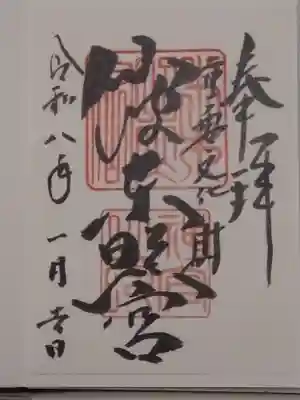 奉拝
重要文化財
仙波東照宮
令和八年一月吉日